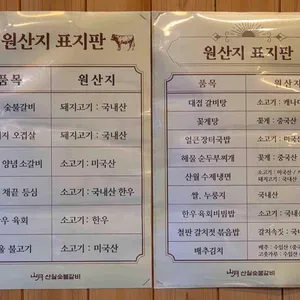 원산지 표지판
품목 원산지
숯불갈비 돼지고기 : 국내산
오겹살 돼지고기 : 국내산
양념소갈비 소고기 : 미국산
채끝 등심 소고기 : 국내산 한우
한우 육회 소고기 : 한우
불고기 소고기 : 미국산
산실숯불갈비
원산지 표지판
품목 원산지
대접 갈비탕 소고기 : 캐나
꽃게탕 꽃게 : 중국산
얼큰 장터국밥 소고기 : 미국산
해물 순두부찌개 꽃게 : 중국산
산월 수제냉면 소고기 : 미국산 /
돼지고기 : 국내산
쌀, 누룽지 국내산
한우 육회비빔밥 소고기 : 국내산
철판 갈치젓 볶음밥 갈치속젓 : 국내
배추김치 배추 : 수입산 (중국
고춧가루 : 수입산
산실숯불갈비